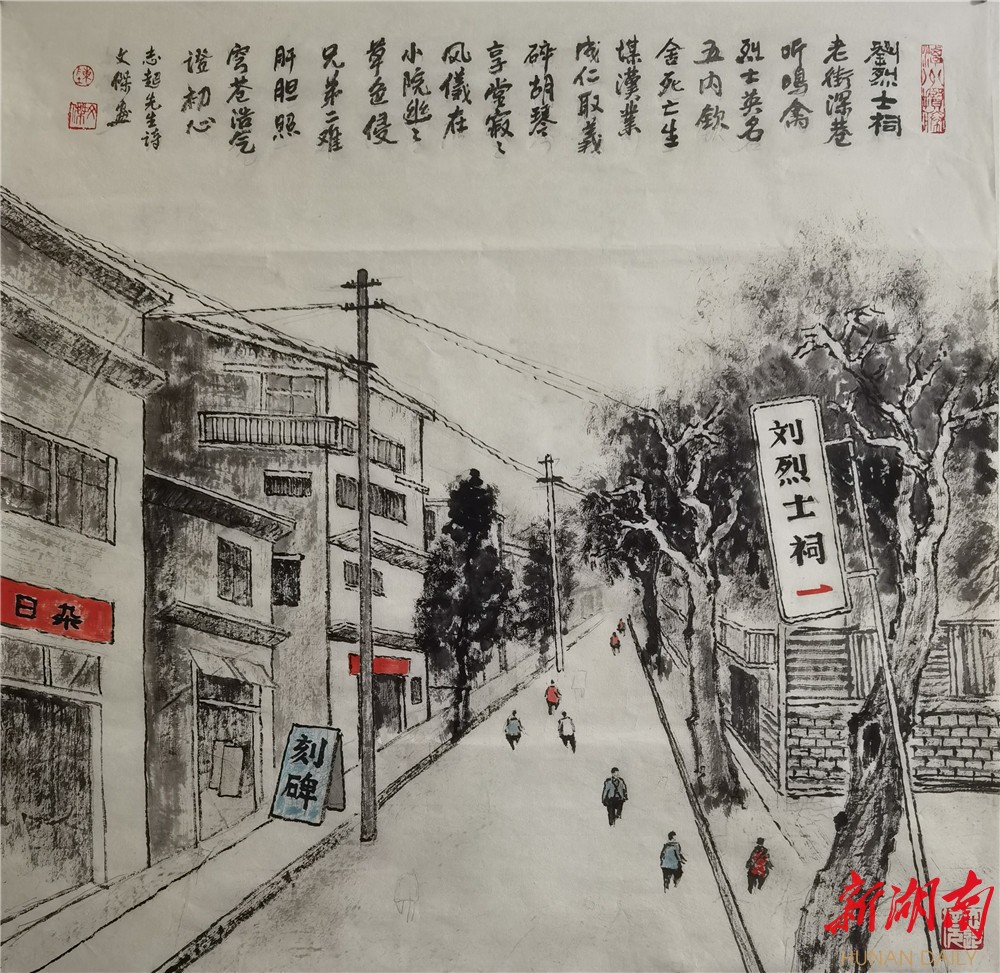 劉烈士祠
老街深巷
听鳴禽
烈士英名
五内欽
舍死亡生
谋漢業
成仁取義
碎胡琴
享堂寂〻
风儀在
小院
草色侵
兄弟二难
肝胆照
穹苍浩气
證初心
志超先生诗
文傑画
刘烈士祠
日杂
刻碑
新湖南
HUNAN DAILY